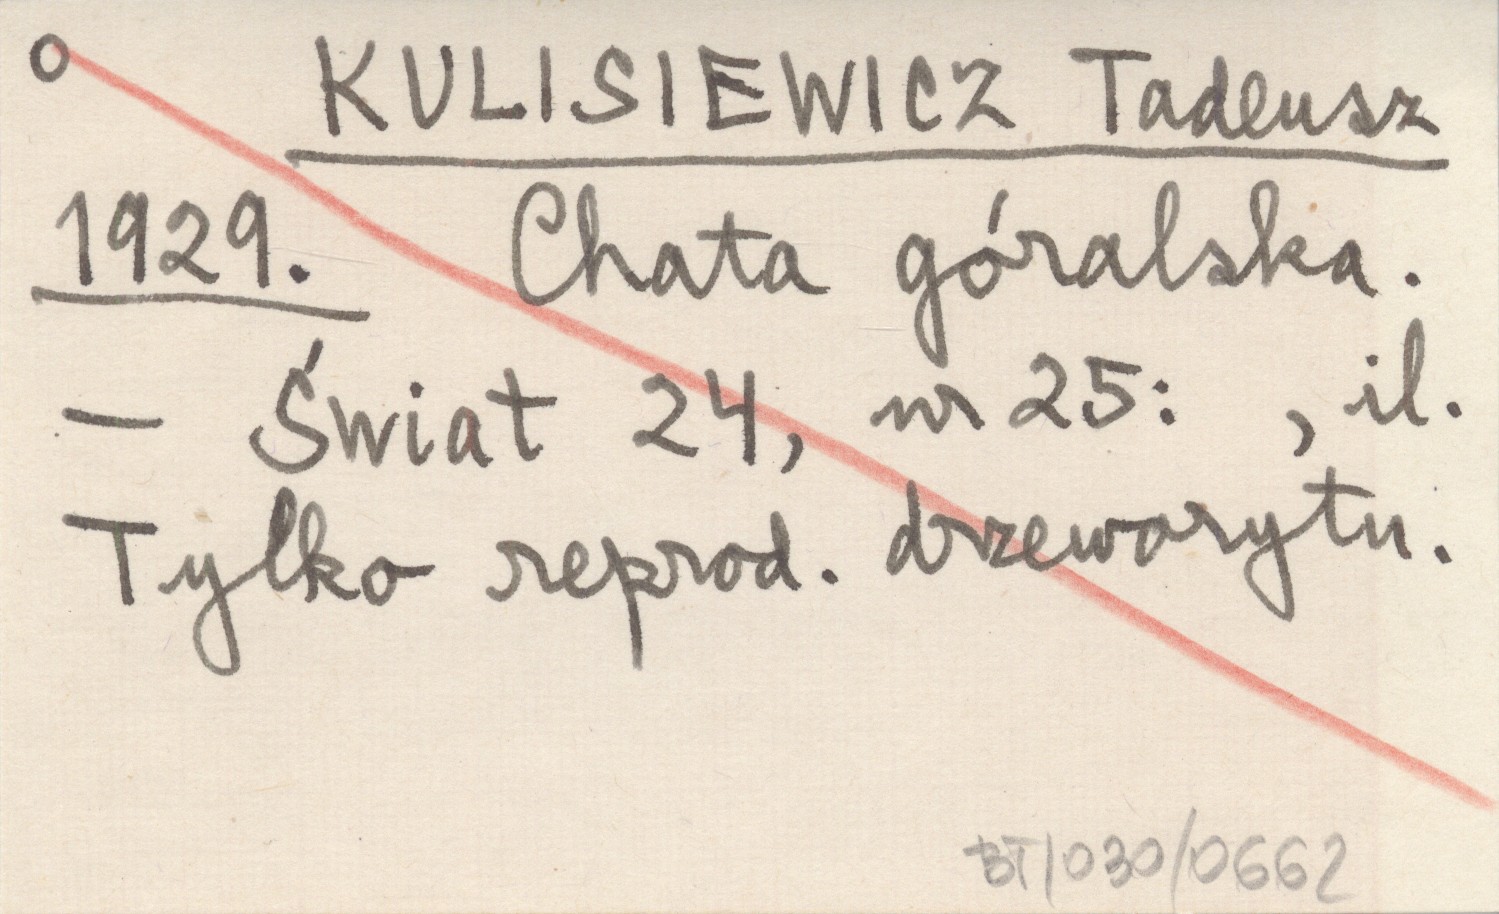 o KULISIEWICZ Tadeusz
1929. Chata góralska.
– Świat 24, nr 25: , il.
Tylko reprod. drzeworytu.
BT/030/0662